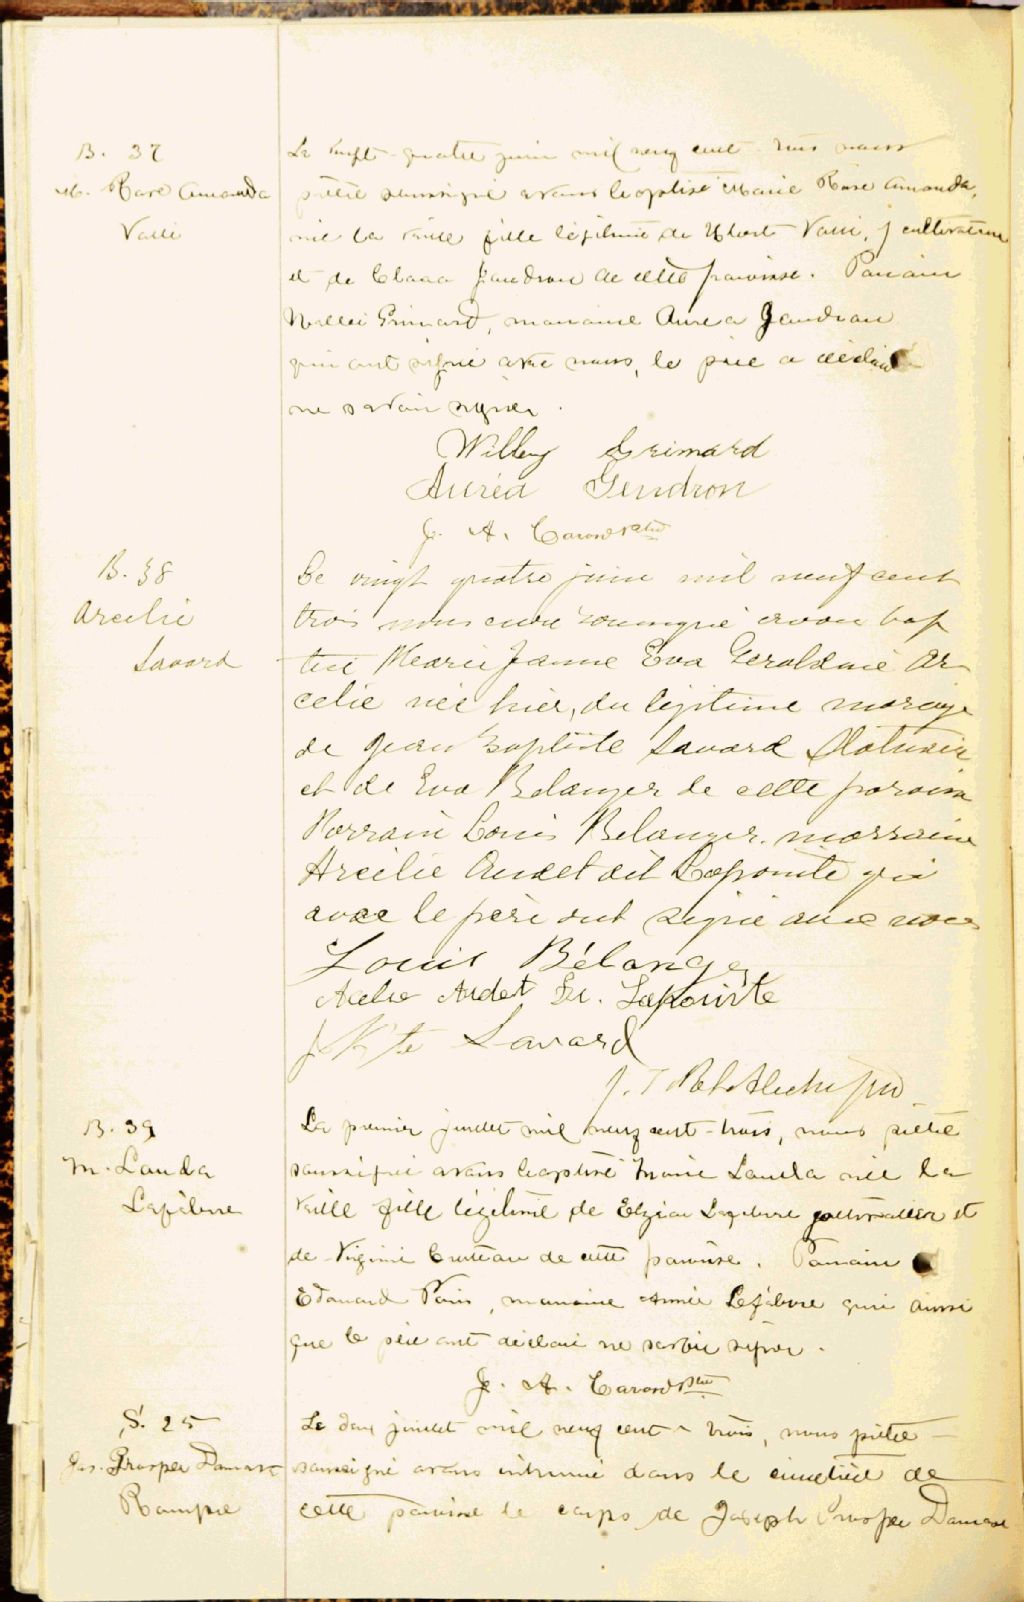 B. 37
M. Rose Amanda
Le vingt-quatre juin mil neuf cent trois nous
prêtre soussigné avons baptisé Marie Rose Amanda,
née la veille fille légitime de cultivateur
et de Clara Gendron de cette paroisse. Parrain
Grimard, marraine Aurea Gendron
qui ont signé avec nous, le père a déclaré
ne savoir signer.
Willey Grimard
Auréa Gendron
J. A. Caron Ptre
B. 38
Arcelie
Savard
Le vingt quatre juin mil neuf cent
trois nous curé soussigné avons bap
tisé Marie Jeanne Eva Geraldine Ar
celie née hier, du légitime mariage
de Jean Baptiste Savard
et de Eva Belanger de cette paroisse
Parrain Louis Belanger. marraine
Arcelie Audet dit Lapointe qui
avec le père ont signé avec nous
Louis Bélanger
Audet Lapointe
J Bte Savard
B. 39
M. Lauda
Lefebvre
Le premier juillet mil neuf cent-trois, nous prêtre
soussigné avons baptisé Marie Lauda née la
veille fille légitime de Elzéar Lefebvre et
de Virginie Cruteau de cette paroisse. Parrain
Edouard Paris, marraine Annie Lefebvre qui ainsi
que le père ont déclaré ne savoir signer.
J. A. Caron Ptre
S. 25
Jos. Prosper Damase
Le deux juillet mil neuf cent-trois, nous prêtre
soussigné avons inhumé dans le cimetière de
cette paroisse le corps de Joseph Prosper Damase